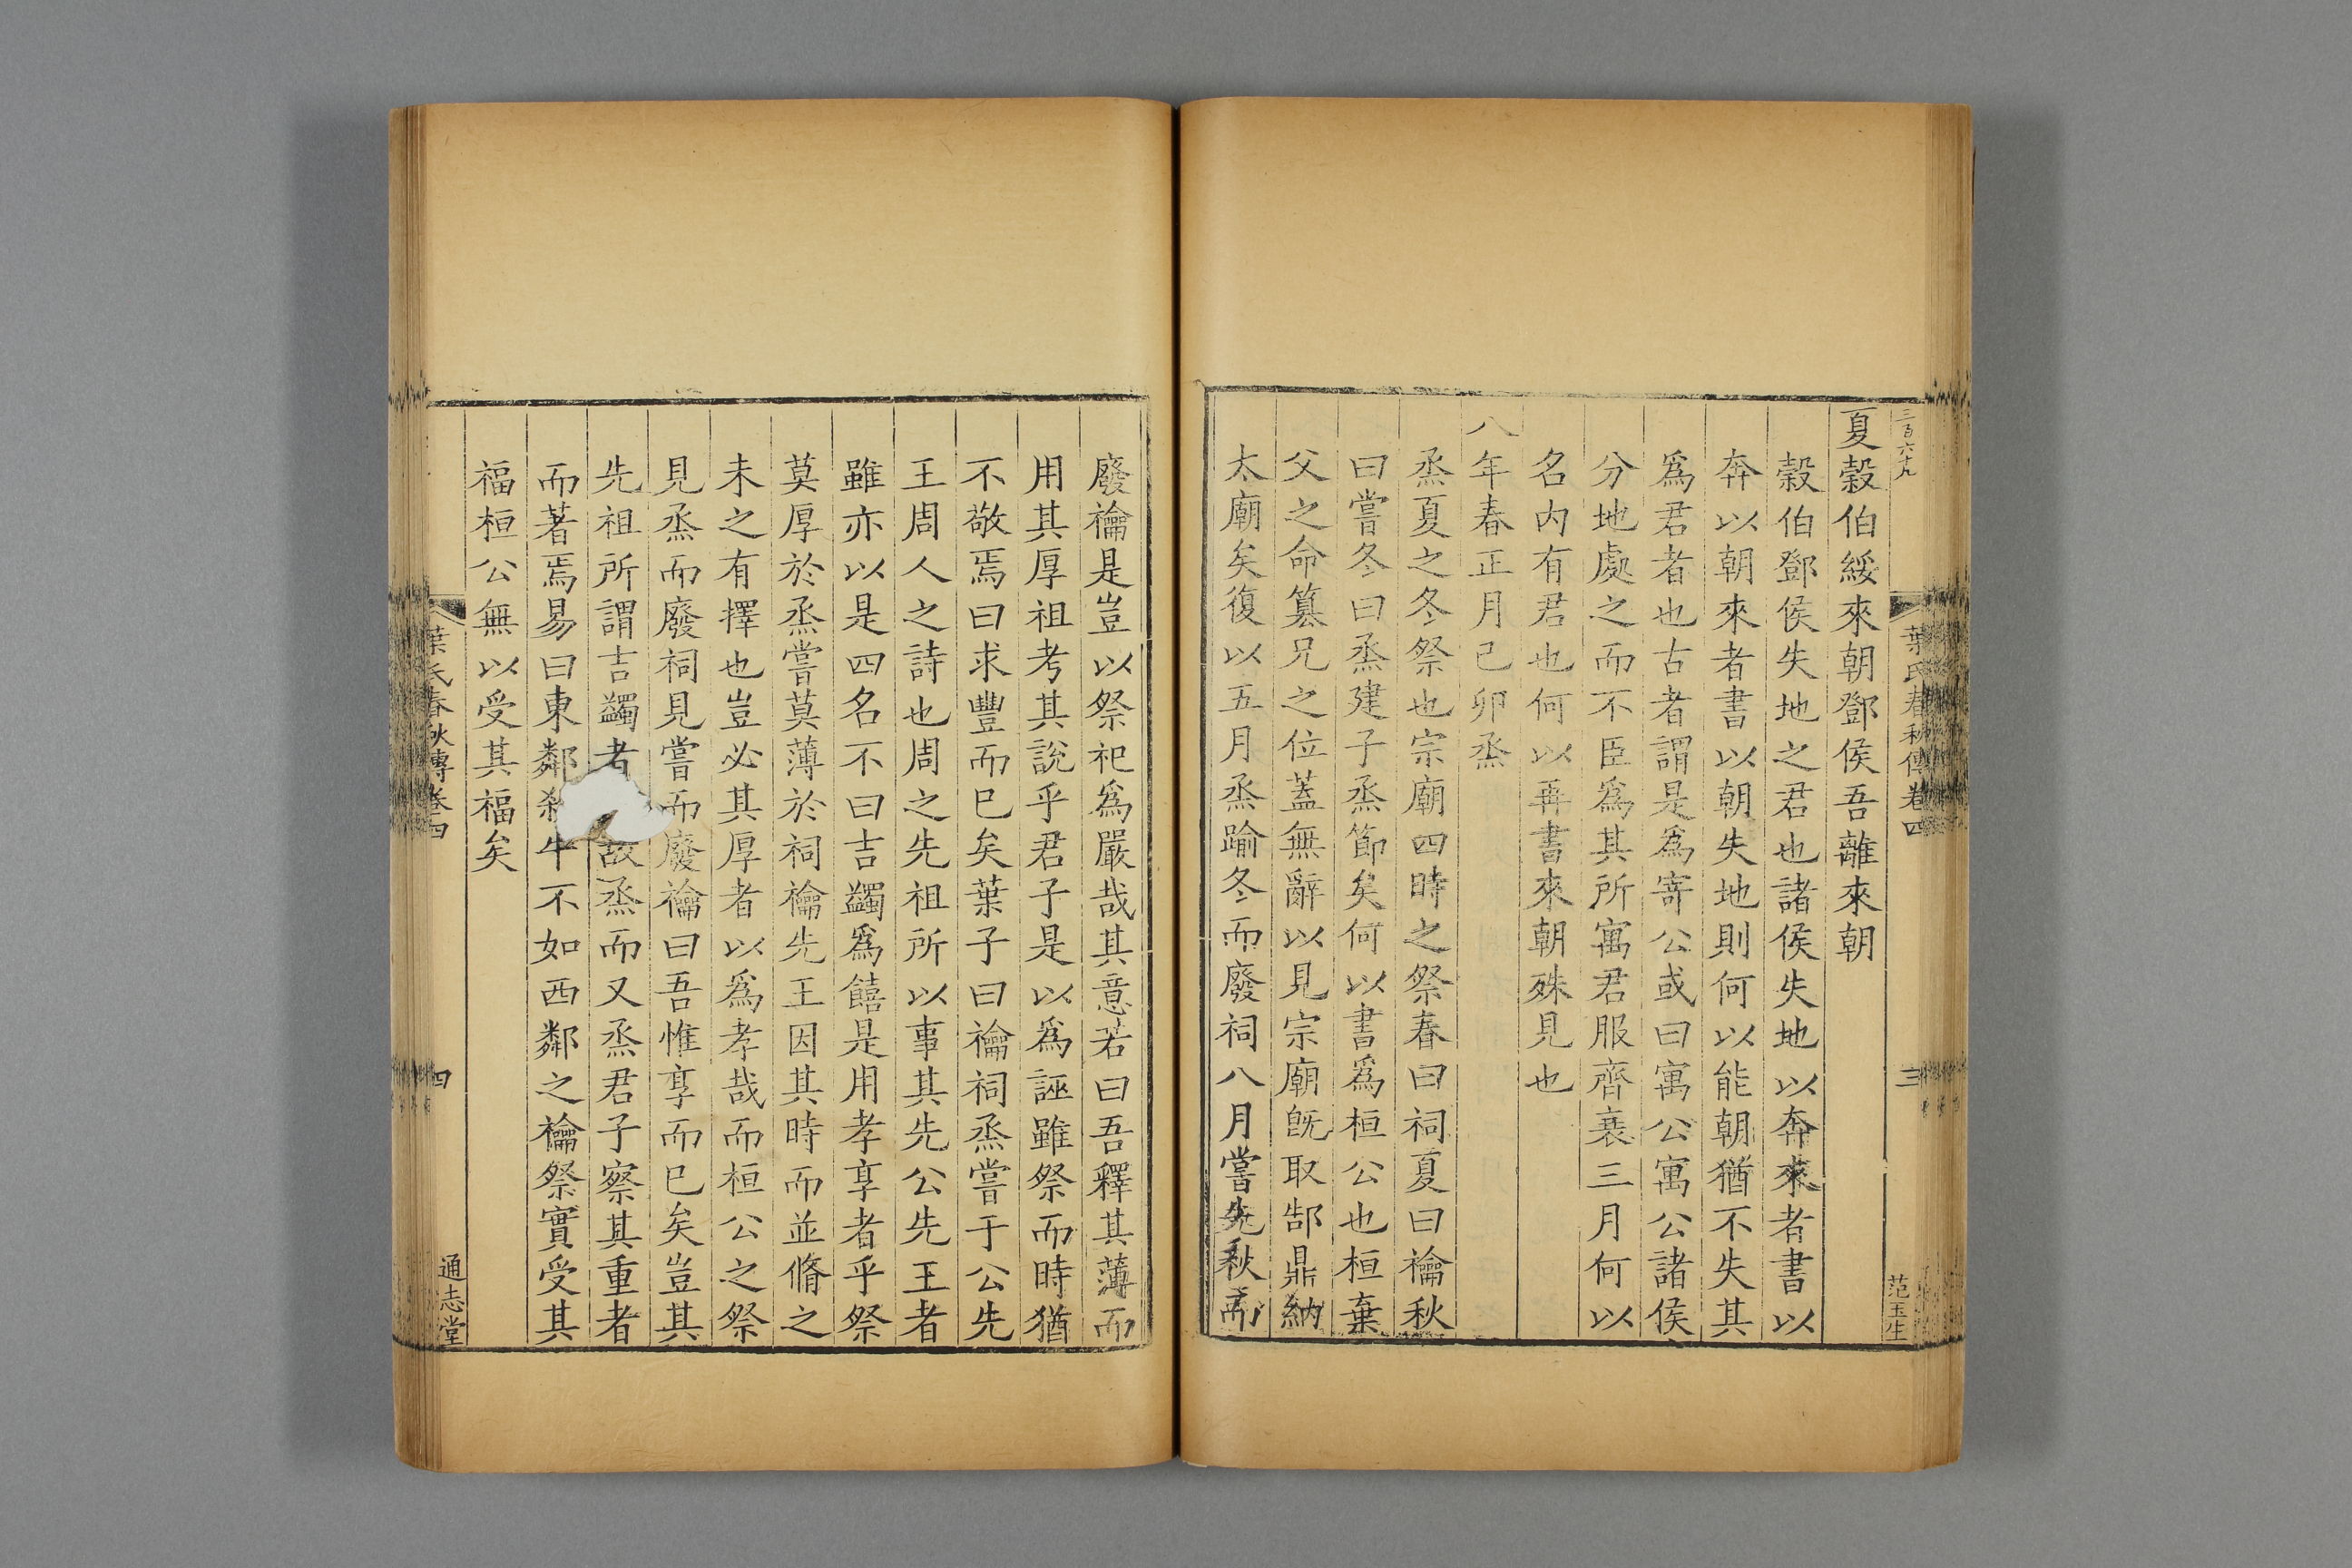 三百六十九
葉氏春秋傳卷四
三
范玉生
夏穀伯綏來朝鄧侯吾離來朝
穀伯鄧侯失地之君也諸侯失地以奔來者書以
奔以朝來者書以朝失地則何以能朝猶不失其
爲君者也古者謂是爲寄公或曰寓公寓公諸侯
分地處之而不臣爲其所寓君服齊衰三月何以
名内有君也何以再書來朝殊見也
八年春正月己卯烝
烝夏之冬祭也宗廟四時之祭春曰祠夏曰禴秋
曰嘗冬曰烝建子烝節矣何以書爲桓公也桓棄
父之命篡兄之位蓋無辭以見宗廟旣取郜鼎納
太廟矣復以五月烝踰冬而廢祠八月嘗先秋而
廢禴是豈以祭祀爲嚴哉其意若曰吾釋其薄而
用其厚祖考其說乎君子是以爲誣雖祭而時猶
不敬焉曰求豐而已矣葉子曰禴祠烝嘗于公先
王周人之詩也周之先祖所以事其先公先王者
雖亦以是四名不曰吉蠲爲饎是用孝享者乎祭
莫厚於烝嘗莫薄於祠禴先王因其時而並脩之
未之有擇也豈必其厚者以爲孝哉而桓公之祭
見烝而廢祠見嘗而廢禴曰吾惟享而已矣豈其
先祖所謂吉蠲者故烝而又烝君子察其重者
而著焉易曰東鄰殺牛不如西鄰之禴祭實受其
福桓公無以受其福矣
葉氏春秋傳卷四
四
通志堂